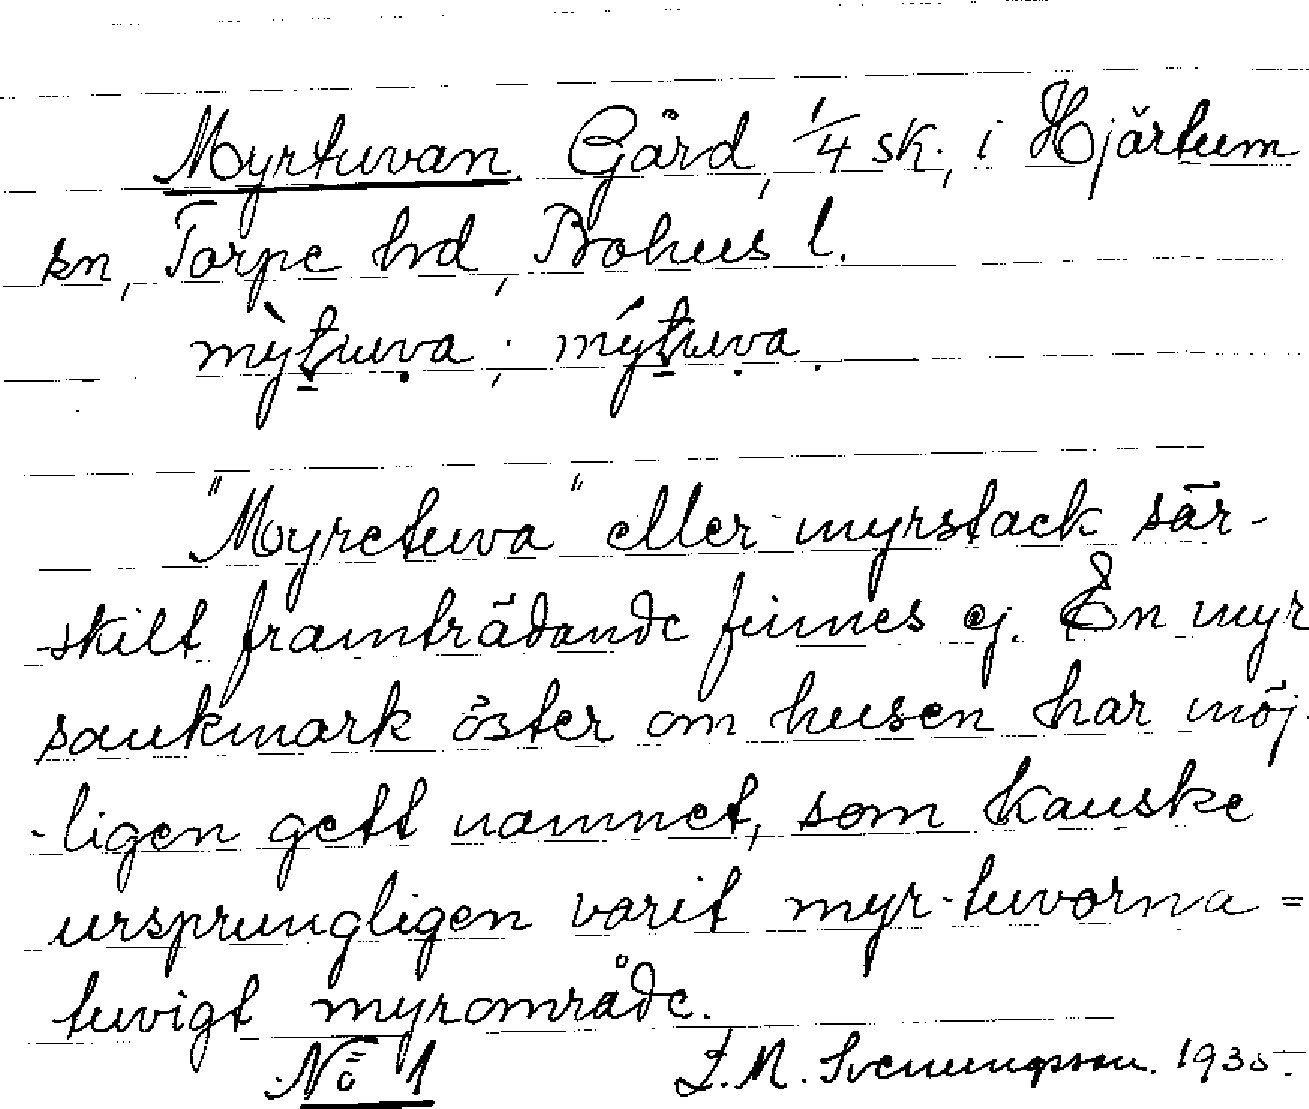 Myrtuvan Gård, 1/4 sk., i Hjärtum
sn, Torpe hrd, Bohus l.
mỳt̠uvạ ; mýt̠uṿa.
"Myretuva" eller myrstack sär-
skilt framträdande finnes ej. En myr
sankmark öster om husen har möj-
-ligen gett namnet, som kanske
ursprungligen varit myr-tuvorna =
tuvigt myrområde.
No 1 L. M. Svenungsson. 1935.